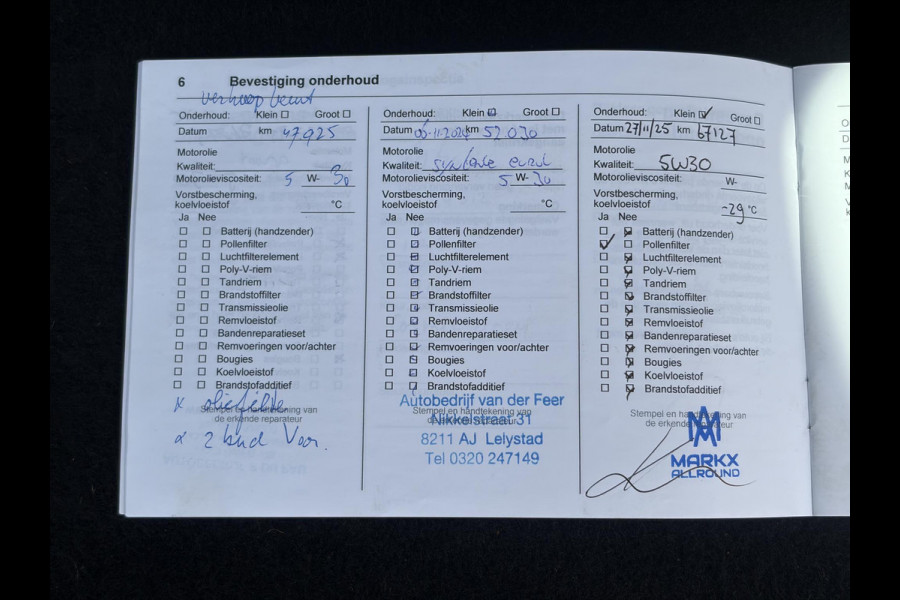 6 Bevestiging onderhoud
verkoop beurt
Onderhoud: Klein Groot
Datum km 47.925
Motorolie
Kwaliteit:
Motorolieviscositeit: 5 W- 30
Vorstbescherming,
koelvloeistof °C
Ja Nee
Batterij (handzender)
Pollenfilter
Luchtfilterelement
Poly-V-riem
Tandriem
Brandstoffilter
Transmissieolie
Remvloeistof
Bandenreparatieset
Remvoeringen voor/achter
Bougies
Koelvloeistof
Brandstofadditief
x oliefilter
Stempel en handtekening van
de erkende reparateur
2 bnd Voor.
Onderhoud: Klein Groot
Datum 06-11-2024 km 52.030
Motorolie
Kwaliteit:
Motorolieviscositeit: 5 W- 30
Vorstbescherming,
koelvloeistof °C
Ja Nee
Batterij (handzender)
Pollenfilter
Luchtfilterelement
Poly-V-riem
Tandriem
Brandstoffilter
Transmissieolie
Remvloeistof
Bandenreparatieset
Remvoeringen voor/achter
Bougies
Koelvloeistof
Brandstofadditief
Autobedrijf van der Feer
Stempel en handtekening van
Nikkelstraat 31
de erkende reparateur
8211 AJ Lelystad
Tel 0320 247149
Onderhoud: Klein Groot
Datum 27/11/25 km 67127
Motorolie
Kwaliteit: 5W30
Motorolieviscositeit: W-
Vorstbescherming,
koelvloeistof -29 °C
Ja Nee
Batterij (handzender)
Pollenfilter
Luchtfilterelement
Poly-V-riem
Tandriem
Brandstoffilter
Transmissieolie
Remvloeistof
Bandenreparatieset
Remvoeringen voor/achter
Bougies
Koelvloeistof
Brandstofadditief
Stempel en handtekening van
de erkende reparateur
MARKX
ALLROUND